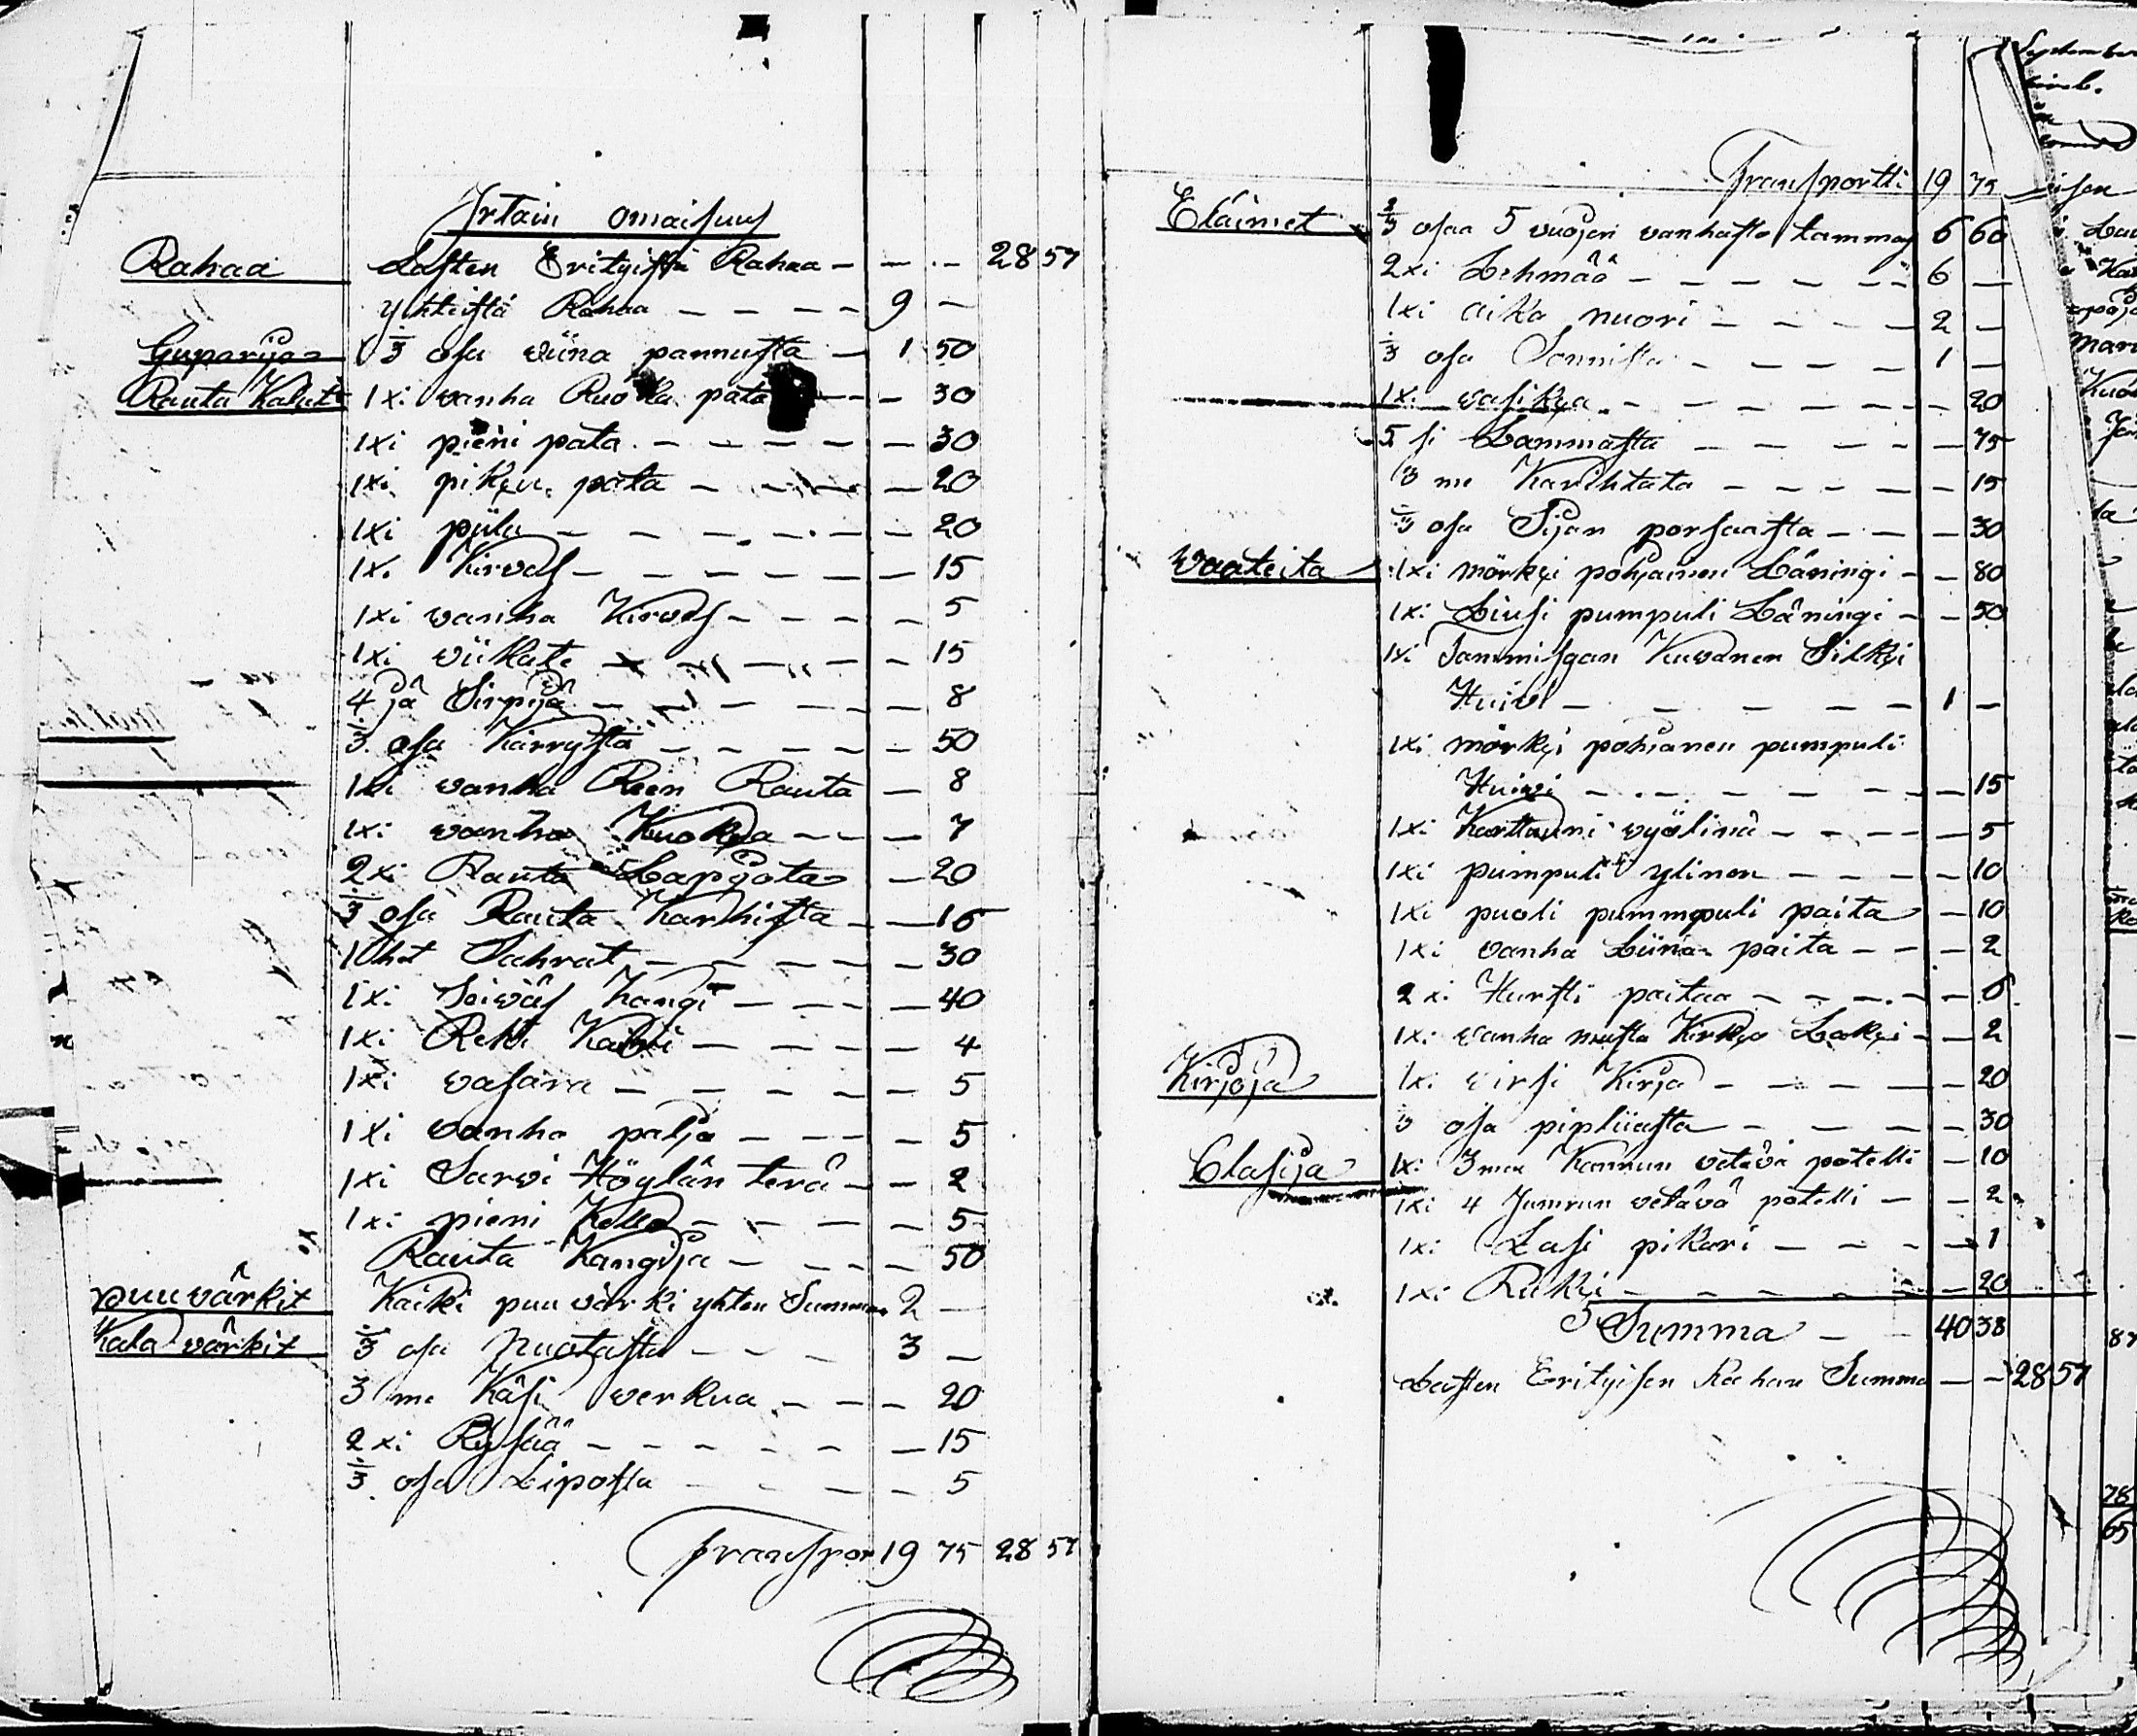 Irtain omaisuus
Rahaa Lasten Erityistä Rahaa - - - 28 57
yhteistä Rahaa - - - - 9 -
Cuparija ⅓ osa wiina pannusta - 1 50
Rauta Kalut 1xi wanha Ruoka pata - - 30
1xi pieni pata - - - - - 30
1xi pikyu pata - - - - 20
1xi piilu - - - - - - 20
1xi Kirves - - - - - - 15
1xi wanha Kirves - - - - - 5
1xi wiikate - - - - - 15
4 jä Sirpijä - - - - - - 8
⅓ osa Kärrystä - - - - - 50
1xi wanha Reen Rauta - 8
1xi wanha Kuokka - - - 7
2xi Rauta Lapijota - 20
⅓ osa Rauta Karhista - - 16
10het Sahrat - - - - - 30
1xi Seiwäs Kangi - - - - 40
1xi Reki - - - - - 4
1xi wasara - - - - - 5
1xi wanha palja - - - - 5
1xi Sarwi Höylän terä - - 2
1xi pieni Kello - - - - - 5
Rauta Kangija - - - - 50
puu värkit Kaiki puu värki yhten Summa 2 -
Kala värkit ⅓ osa Nuotasta - - - 3 -
3 me Käsi werkua - - - 20
2xi Rysää - - - - - - 15
⅓ osa Liposta - - - - 5
Transpor 19 75 28 57
Transportti 19 75
Eläimet ⅔ osaa 5 vuojen vanhasta tammas 6 60
2xi Lehmää - - - - - - 6 -
1xi aika nuori - - - - 2 -
⅓ osa Sonnista - - - - 1 -
1xi wasikya - - - - - - 20
5 si Lammasta - - - - - 75
3 me Karihtata - - - - - 15
⅓ osa Sijan porsaasta - - - 30
Waateita 1xi mörkyi pohjainen Läningi - - 80
1xi Liusi pumpuli Läningi - - 50
1xi Tammisgan Kuvanen Silkyi
Huivi - - - - - - 1 -
1xi mörkyi pohjanen pumpuli
Huiwi - - - - - - - 15
1xi Karttuuni vyölinä - - - - - 5
1xi pumpuli ylinen - - - - - 10
1xi puoli pummpuli paita - 10
1xi vanha Liina paita - - - 2
2xi Hursti paitaa - - - - - 6
1xi vanha musta Kirkyo Lakyi - - 2
Kirjoja 1xi virsi Kirja - - - - - 20
⅓ osa pipliasta - - - - 30
Clasija 1xi 3men Kannun vetävä potelli - 10
1xi 4 Jumrun vetävä potelli - - 2
1xi Lasi pikari - - - - 1
1xi Rukyi - - - - - - - 20
Summa - - 40 38
Lasten Erityisen Rahan Summa - - 28 57